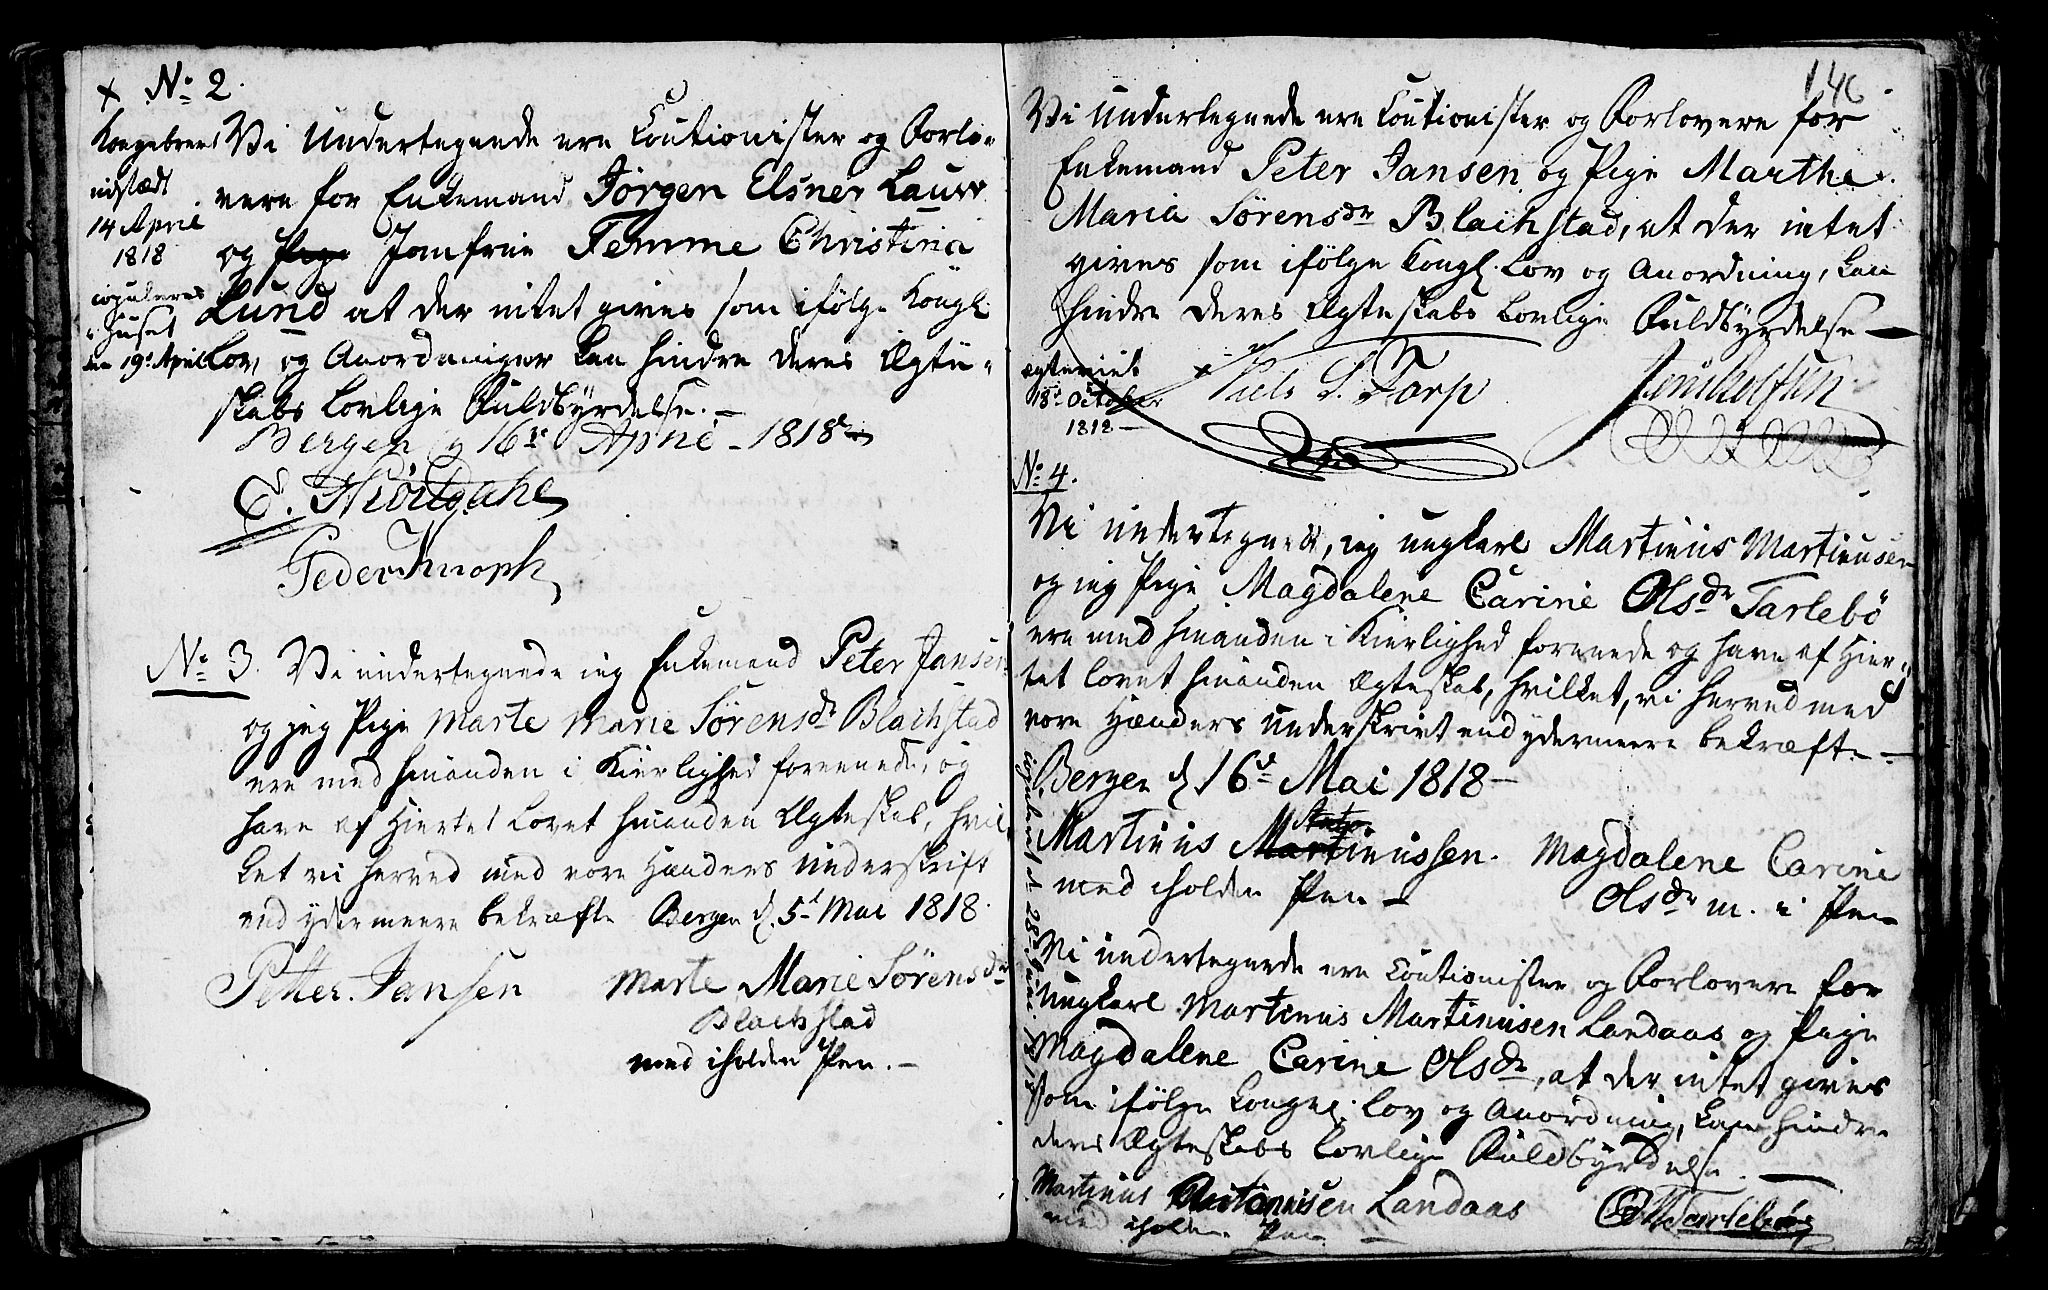 x No 2.
Kongebrev
udstædt
14 April
1818
copuleres
i Huset
den 19d April
Vi Undertegnede ere Coutionister og Forlo-
vere for Enkemand Jörgen Elsner Laurs
og Pige Jomfrue Temme Christina
Lund at der intet gives som ifölge Kongl.
Lov, og Anordninger kan hindre deres Ægte-
skabs Lovlige Fuldbyrdelse. —
Bergen d 16de April - 1818
Peder Knoph
No 3. Vi undertegnede ieg Enkemand Peter Jansen
og jeg Pige Marte Marie Sörensdr Blachstad
ere med hinanden i Kierlighed foreenede, og
have af Hiertet Lovet hinanden Ægteskab, hvil-
ket vi herved med vore Hænders Underskrift
end ydermeere bekræfte Bergen d. 5d Mai 1818.
Petter. Jansen Marte Marie Sörensdr
Blachstad
med iholden Pen. —
146
Vi Undertegnede ere Coutionister og Forlovere for
Enkemand Peter Jansen og Pige Marthe
Maria Sörensdr Blachstad, at der intet
gives som ifölge Kongl. Lov og Anordning, kan
hindre deres Ægteskabs Lovlige Fuldbyrdelse —
ægteviet
18d October
1818 —
Niels S. Torp
No 4.
Vi undertegnede, ieg ungkarl Martinus Martinusen
og ieg Pige Magdalene Carine Olsdr Tarlebö
ere med hinanden i Kierlighed forenede og have af Hier-
tet lovet hinanden Ægteskab, hvilket, vi herved med
vore Hænders Underskrivt end ydermeere bekræfte —
Bergen d 16d Mai 1818 —
copuleret d. 28d Juni 1818
Martinus Martinussen. Magdalene Carine
med iholden Pen — Olsdr m. i Pen
Vi undertegnede ere Coutionister og Forlovere for
Ungkarl Martinus Martinusen Landaas og Pige
Magdalene Carine Olsdr, at der intet gives
som ifölge Kongel. Lov og Anordning, kan hindre
deres Ægteskabs Lovlige Fuldbyrdelse. —
Martinus Antonisen Landaas Tarleböe
med iholden Pen —